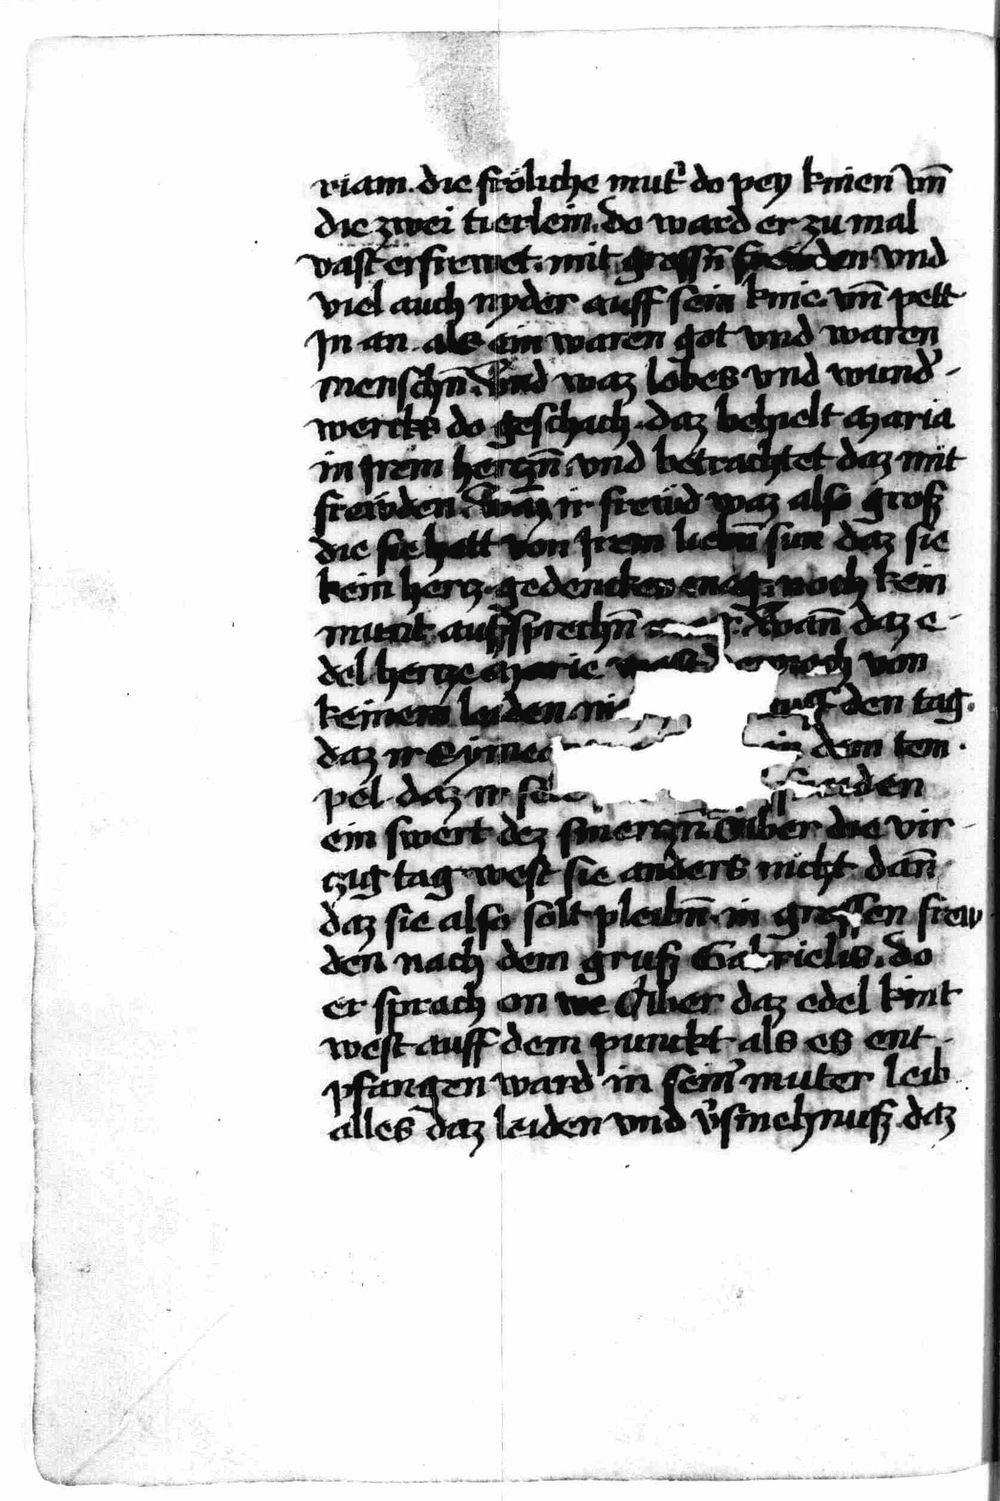 riam. die fröliche mut̾ do pey knien vn̄
die zwei tierlein. do ward er zu mal
vast erfrewet. mit grossn̄ frewden vnd
viel auch nyder auff sein knie. vn̄ pett
Jn an. als ein waren got vnd waren
menschn̄. Vnd waz lobes vnd wund̾
wercks do geschach. daz behielt Maria
in Jrem hertzn̄. vnd betrachtet daz mit
frewden. Wan ir frewd waz also groß
die sie hett von Jrem liebn̄ sun daz sie
kein hertz gedencken mag. noch kein
munt außsprechn̄ Wan̄ daz e-
del hertze Marie ward dennoch von
keinem leiden auff den tag.
daz ir Symeo in dem tem-
pel. daz ir
ein swert dez smertzn̄. Aber die vir-
tzig tag west sie anders nicht dan̄
daz sie also solt pleibn̄. in grossen frew
den nach dem gruß Gabrielis. do
er sprach on we Aber daz edel kint
west auff dem punckt als es ent-
pfangen ward in sein̾ muter leib
alles daz leiden vnd v̾smehnuß. daz